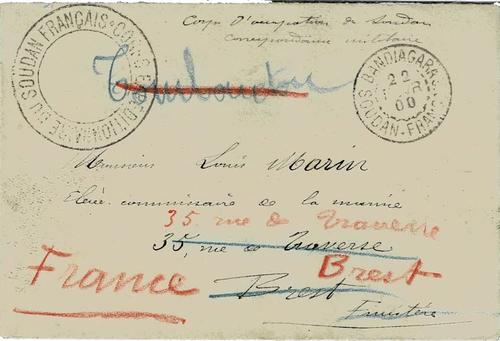 Corps d'occupation du Soudan
correspondance militaire
SOUDAN FRANÇAIS
DU SOUDAN
BANDIAGARA
22
00
SOUDAN-FRANÇ
Tombouctou
Monsieur Louis Marin
Elève commissaire de la marine
35 rue de Traverse
35, rue de Traverse
France
Brest
Brest
Finistère